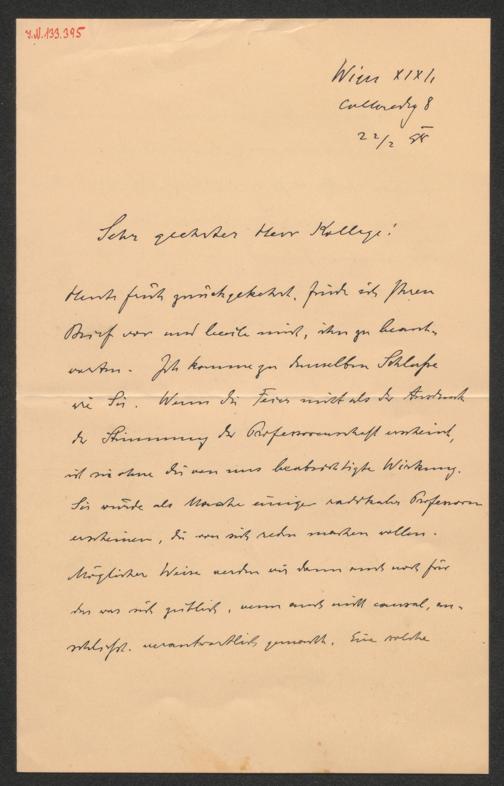 J.N. 133.395
Wien XIX/1
Colloredog 8
22/2
Sehr geehrter Herr Kollege!
Heute früh zurückgekehrt, finde ich Ihren
Brief vor und beeile mich, ihn zu beant-
worten. Ich komme zu demselben Schlusse
wie Sie. Wenn die Feier nicht als der Ausdruck
der Stimmung der Professorenschaft erscheint,
ist sie ohne die von uns beabsichtigte Wirkung.
Sie würde als Mache einiger radikaler Professoren
erscheinen, die von sich reden machen wollen.
Möglicher Weise werden wir dann auch noch für
das was sich zeitlich, wenn auch nicht causal, an-
schließt, verantwortlich gemacht. Eine solche